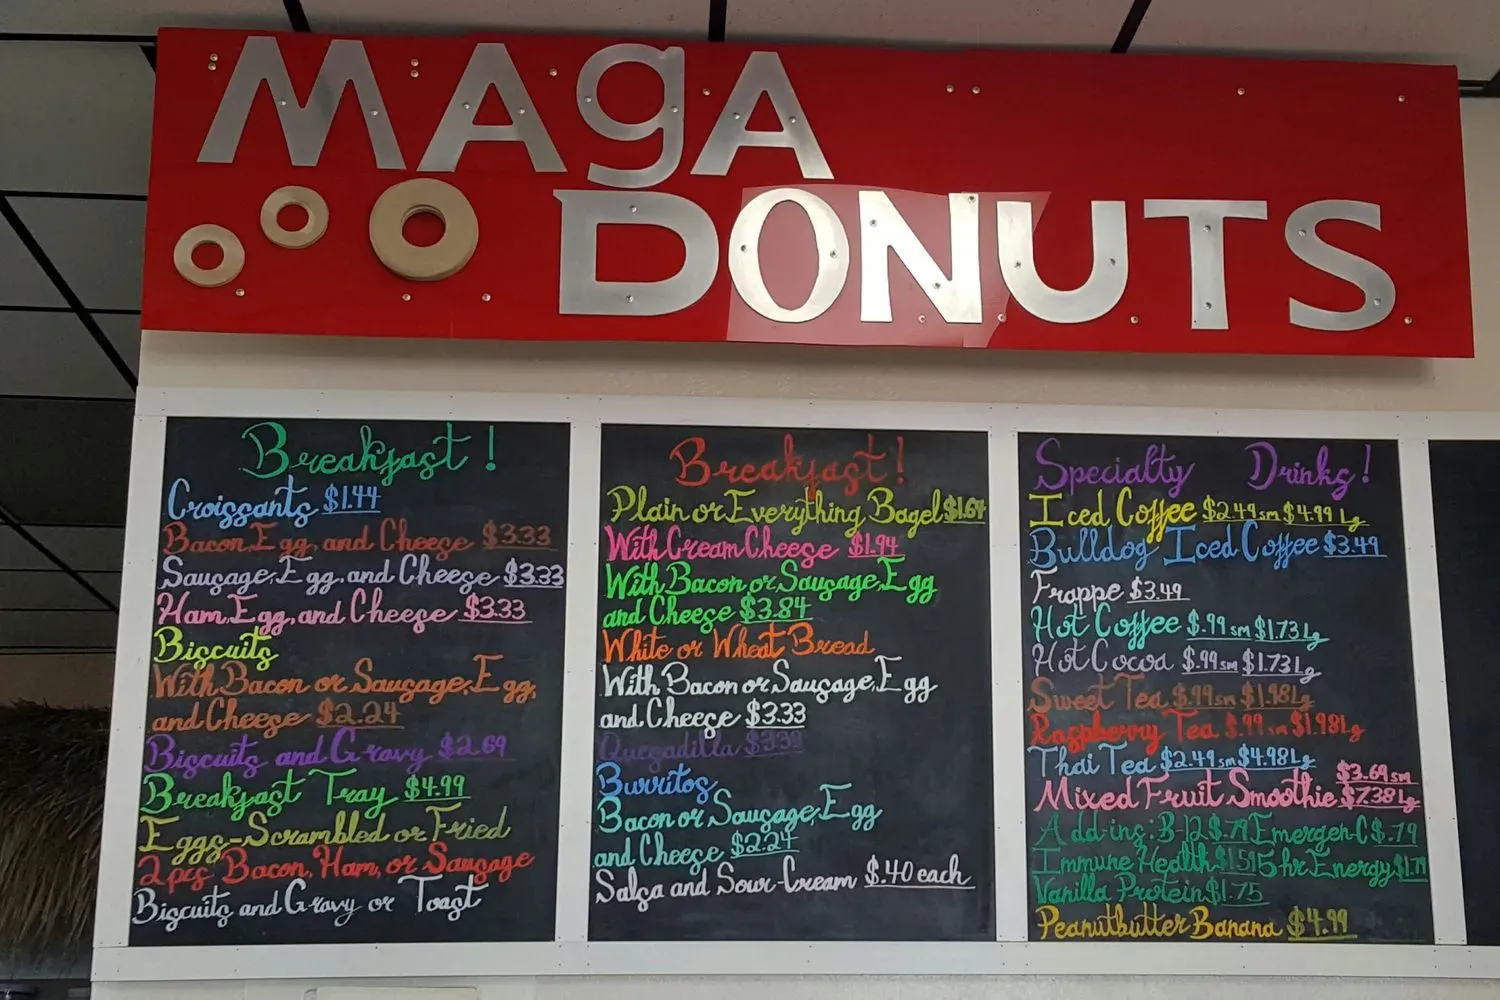 MAgA
DONUTS
Breakfast!
Croissants $1.44
Bacon, Egg, and Cheese $3.33
Sausage, Egg, and Cheese $3.33
Ham, Egg, and Cheese $3.33
Biscuits
With Bacon or Sausage, Egg,
and Cheese $2.24
Biscuits and Gravy $2.69
Breakfast Tray $4.99
Eggs-Scrambled or Fried
2 pcs Bacon, Ham, or Sausage
Biscuits and Gravy or Toast
Breakfast!
Plain or Everything Bagel $1.64
With Cream Cheese $1.94
With Bacon or Sausage, Egg
and Cheese $3.84
White or Wheat Bread
With Bacon or Sausage, Egg
and Cheese $3.33
Quesadilla $3.33
Burritos
Bacon or Sausage, Egg
and Cheese $2.24
Salsa and Sour-Cream $.40 each
Specialty Drinks!
Iced Coffee $2.49 sm $4.99 Lg
Bulldog Iced Coffee $3.49
Frappe $3.49
Hot Coffee $.99 sm $1.73 Lg
Hot Cocoa $.99 sm $1.73 Lg
Sweet Tea $.99 sm $1.98 Lg
Raspberry Tea $.99 sm $1.98 Lg
Thai Tea $2.49 sm $4.98 Lg
$3.69 sm
Mixed Fruit Smoothie $7.38 Lg
Add-ins: B-12 $.79 Emergen-C $.79
Immune Health $1.59 5 hr Energy $1.79
Vanilla Protein $1.75
Peanutbutter Banana $4.99